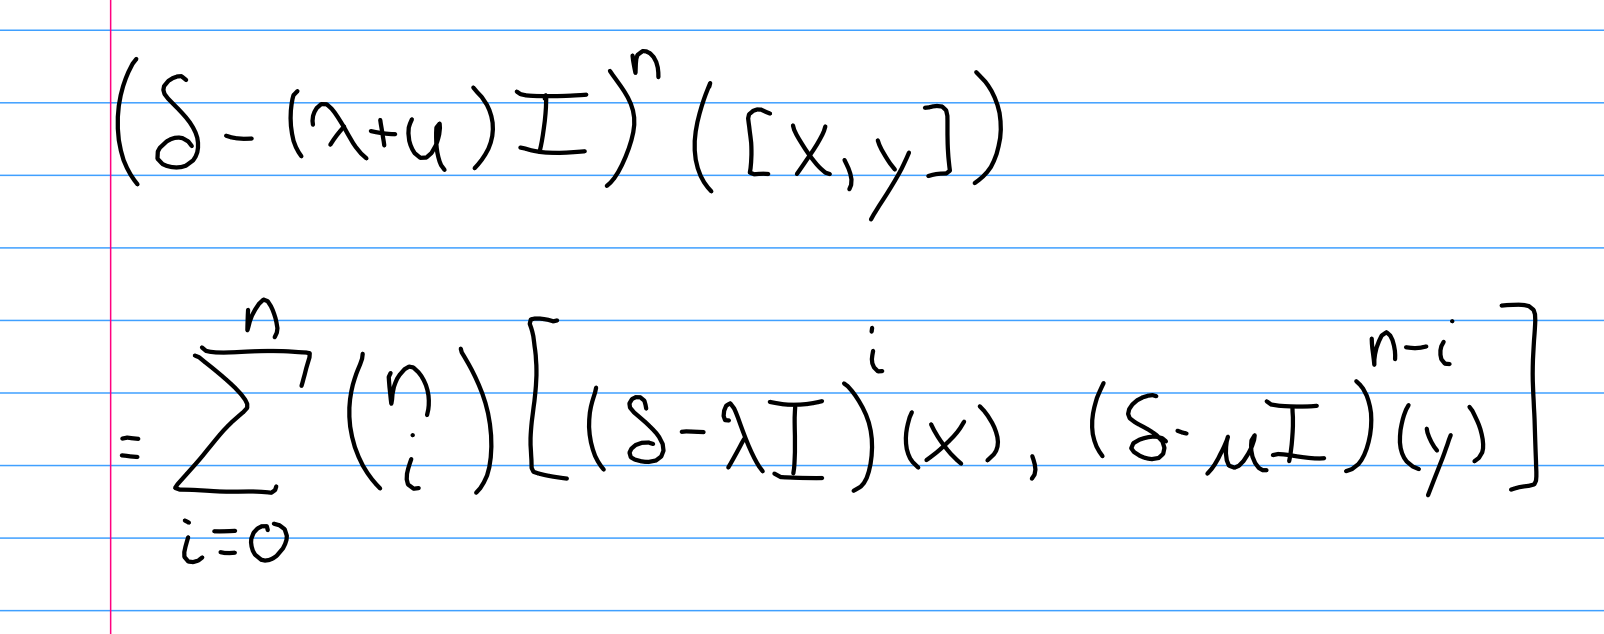 (δ - (λ+μ)I)^n ([x,y])
= \sum_{i=0}^{n} \binom{n}{i} [(δ-λI)^i (x), (δ-μI)^{n-i} (y)]